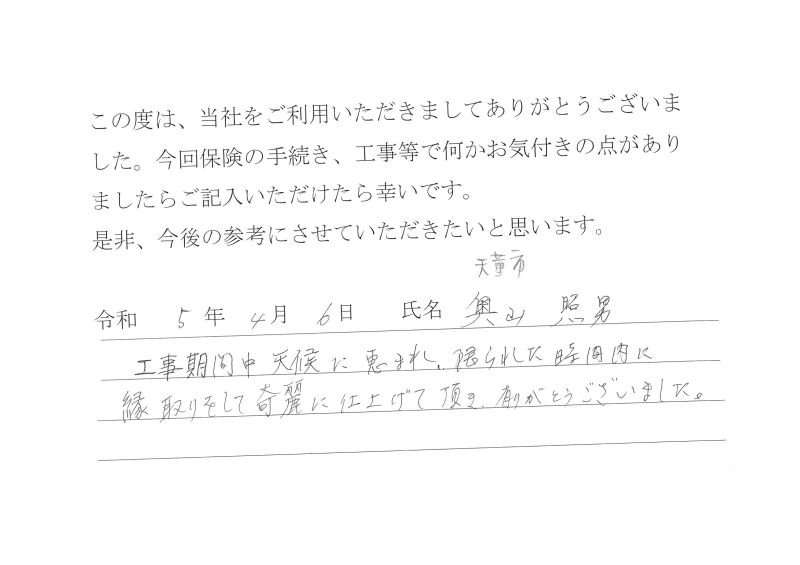 この度は、当社をご利用いただきましてありがとうございま
した。今回保険の手続き、工事等で何かお気付きの点があり
ましたらご記入いただけたら幸いです。
是非、今後の参考にさせていただきたいと思います。
天童市
令和 5年 4月 6日 氏名 奥山 照男
工事期間中天候に恵まれ、限られた時間内に
縁取りをして奇麗に仕上げて頂き、有りがとうございました。